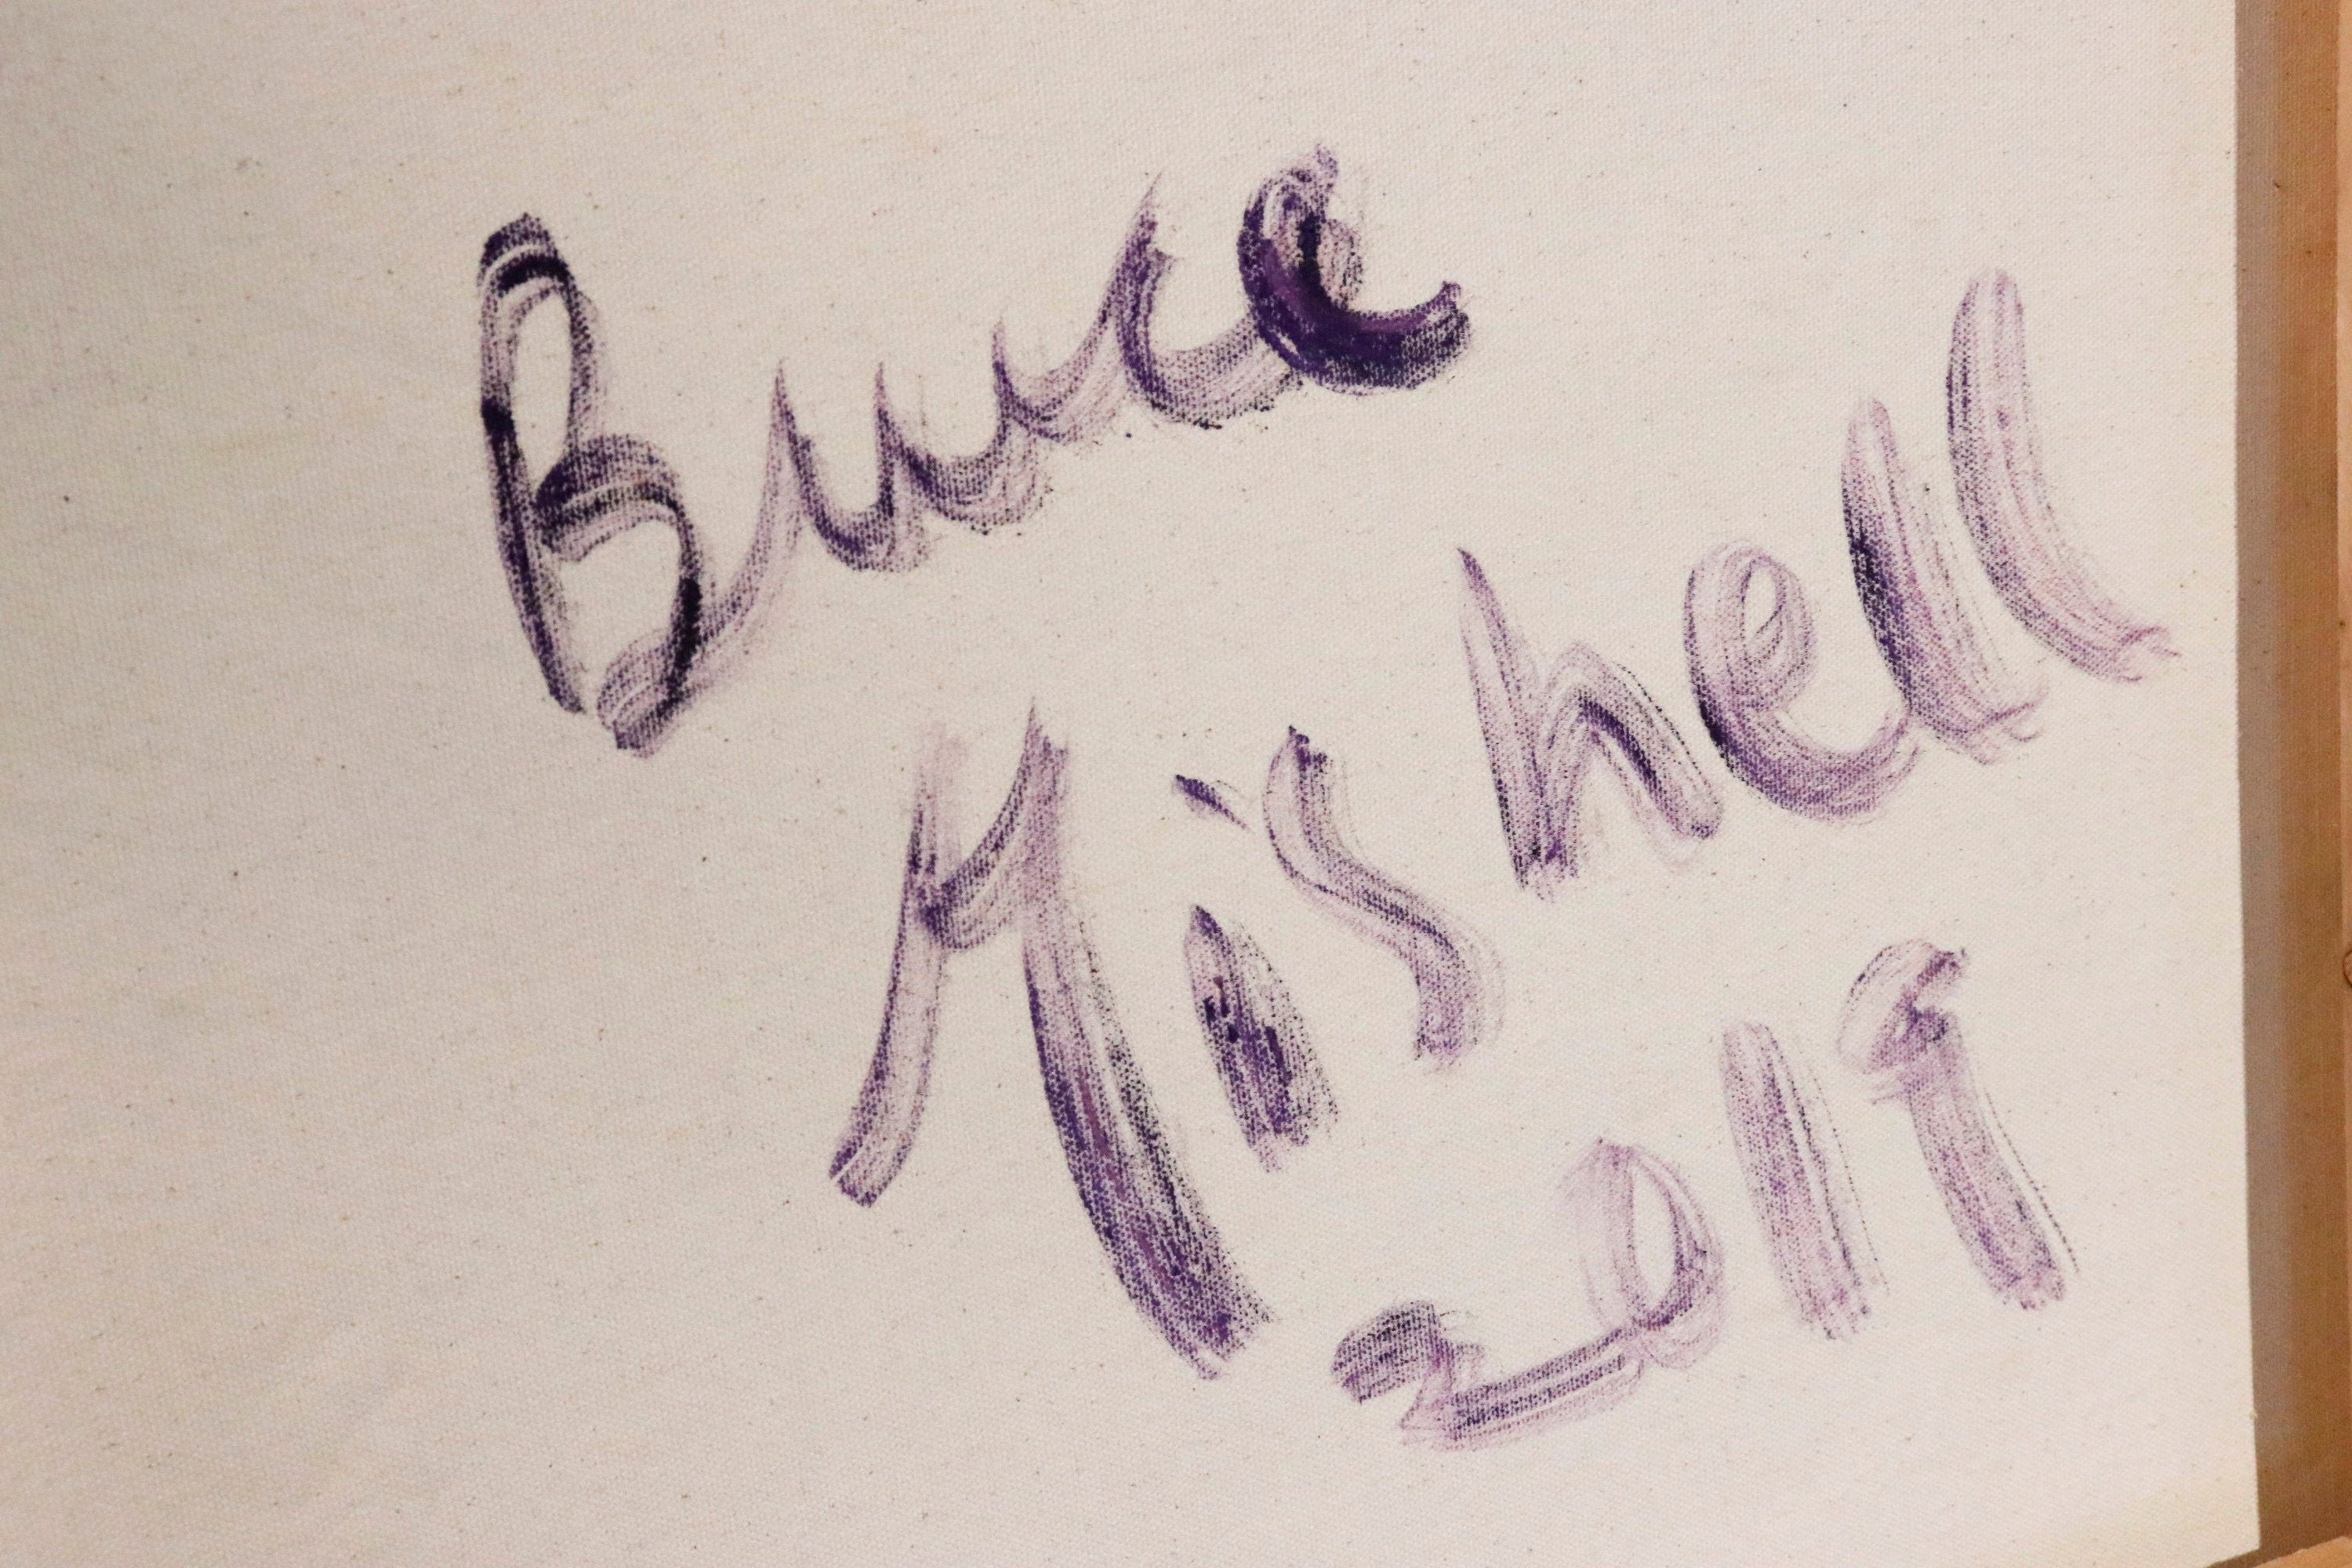 Bruce
Mishell
2019